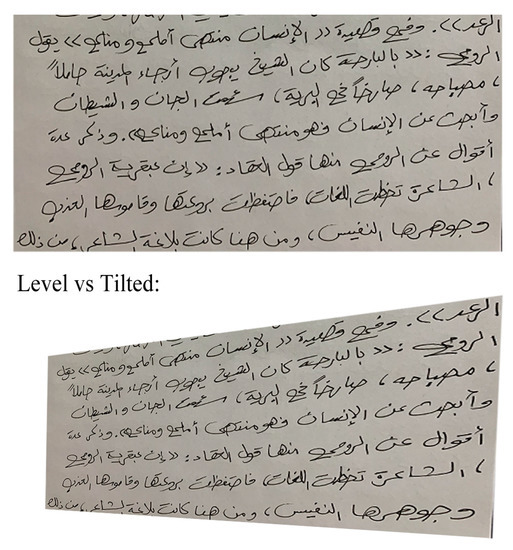 الرعد>>. وفي قصيدة << الإنسان منتهى أملي ومناي >> يقول
الرومي : << بالبارحة كان الشيخ يجوب أرجاء المدينة حاملاً
، مصباحه ، صارخاً في البرية ، سئمت الجان و الشيطان
وأبحث عن الإنسان فهو منتهى أملي ومناي>>. وذكر عدة
أقوال عن الرومي منها قول العقاد : << إن عبقرية الرومي
، الشاعرة تخطت اللغات فاحتفظت بروعتها وقاموسها العذب
وجوهرها النفيس ، ومن هنا كانت بلاغة الشاعر ، من ذلك
Level vs Tilted:
الرعد>>. وفي قصيدة << الإنسان منتهى أملي ومناي >> يقول
الرومي : << بالبارحة كان الشيخ يجوب أرجاء المدينة حاملاً
، مصباحه ، صارخاً في البرية ، سئمت الجان و الشيطان
وأبحث عن الإنسان فهو منتهى أملي ومناي>>. وذكر عدة
أقوال عن الرومي منها قول العقاد : << إن عبقرية الرومي
، الشاعرة تخطت اللغات فاحتفظت بروعتها وقاموسها العذب
وجوهرها النفيس ، ومن هنا كانت بلاغة الشاعر ، من ذلك